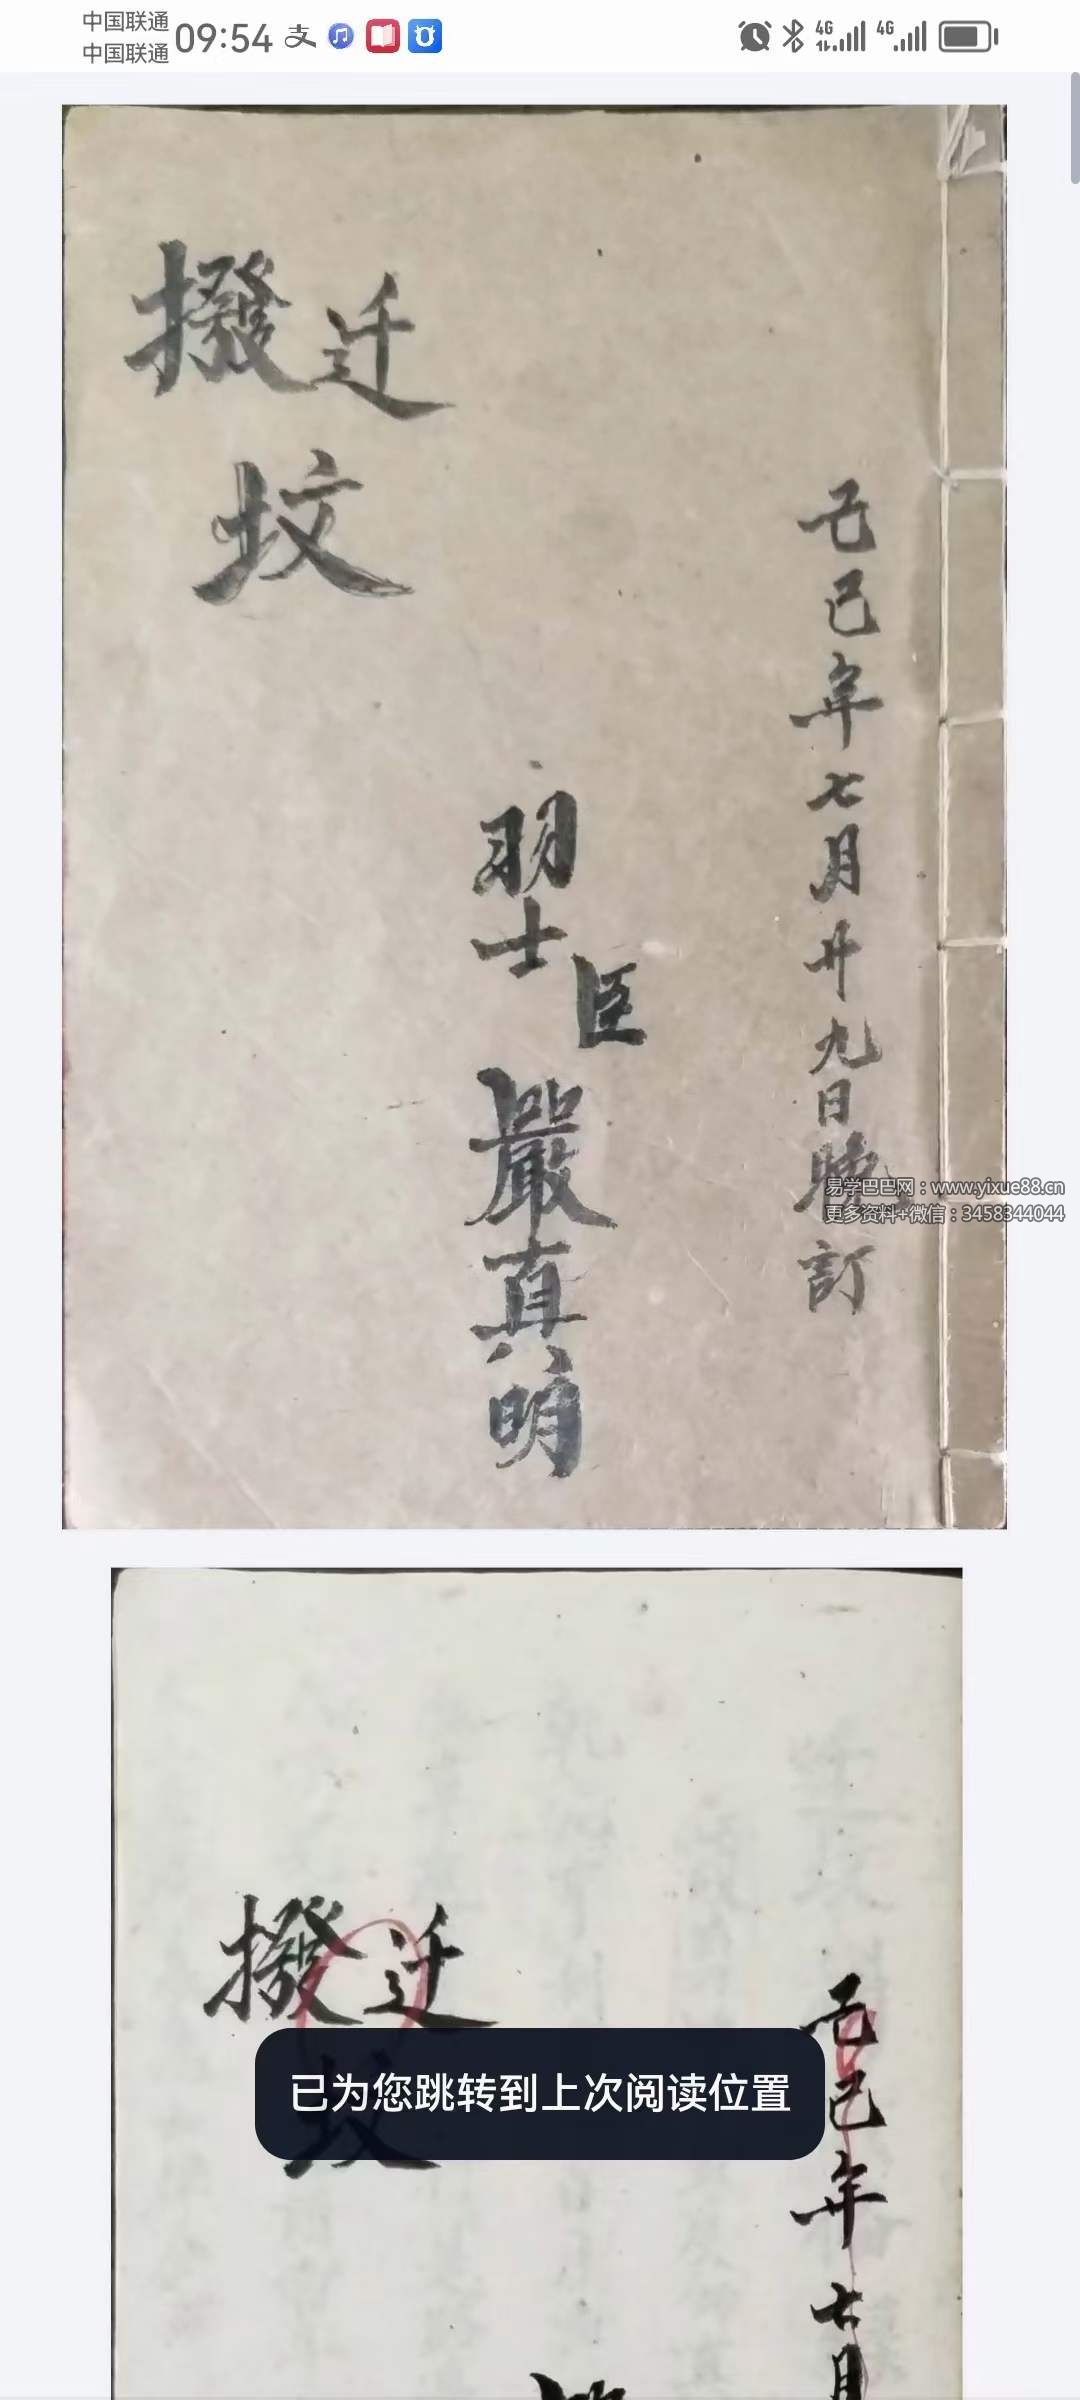 中国联通
中国联通
09:54
4G
4G
己巳年七月廿九日
訂
羽士臣嚴真明
撥迁坟
易学巴巴网：www.yixue88.cn
更多资料+微信：3458344044
己巳年七月
撥迁坟
已为您跳转到上次阅读位置